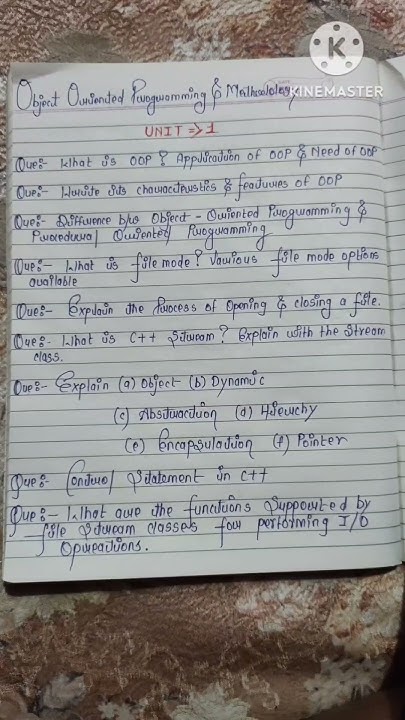 KINEMASTER
Object Oriented Programming & Methodology
UNIT => 1
Que:- What is OOP? Application of OOP & Need of OOP
Que:- Write its characteristics & features of OOP
Que:- Difference b/w Object - Oriented Programming &
Procedural Oriented Programming
Que:- What is file mode? Various file mode options
available
Que:- Explain the Process of Opening & closing a file.
Que:- What is C++ Stream? Explain with the Stream
class.
Que:- Explain (a) Object (b) Dynamic
(c) Abstraction (d) Hierchy
(e) Encapsulation (f) Pointer
Que:- Control Statement in C++
Que:- What are the functions Supported by
file Stream classes for performing I/O
Operations.